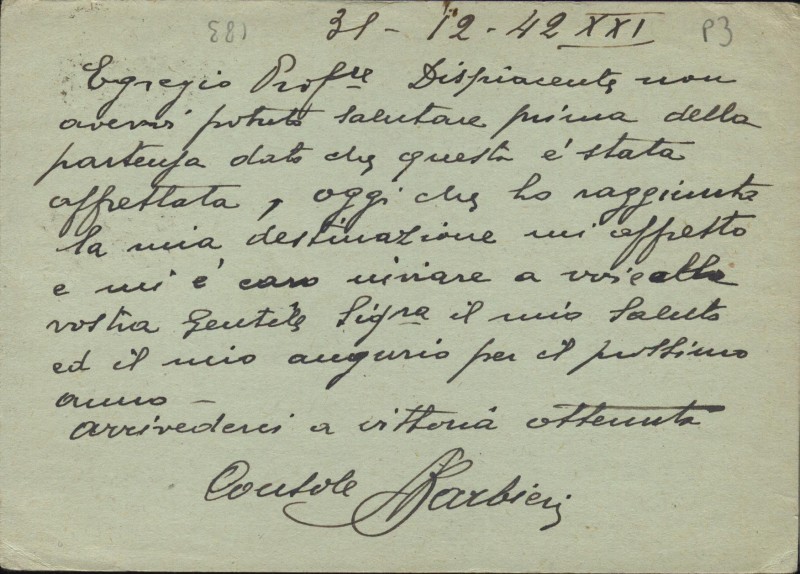 (83) 31 - 12 - 42 XXI P3
Egregio Profre Dispiacente non
avervi potuto salutare prima della
partenza dato che questa è stata
affrettata, oggi che ho raggiunta
la mia destinazione mi affretto
e mi è caro inviare a voi e alla
vostra Gentile Sigra il mio saluto
ed il mio augurio per il prossimo
anno -
Arrivederci a vittoria ottenuta
Console Barbieri